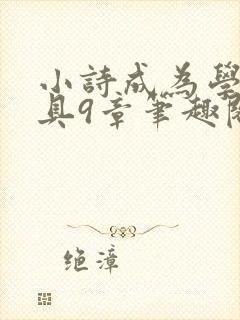 小詩成為學
具9章筆趣閣
绝漳